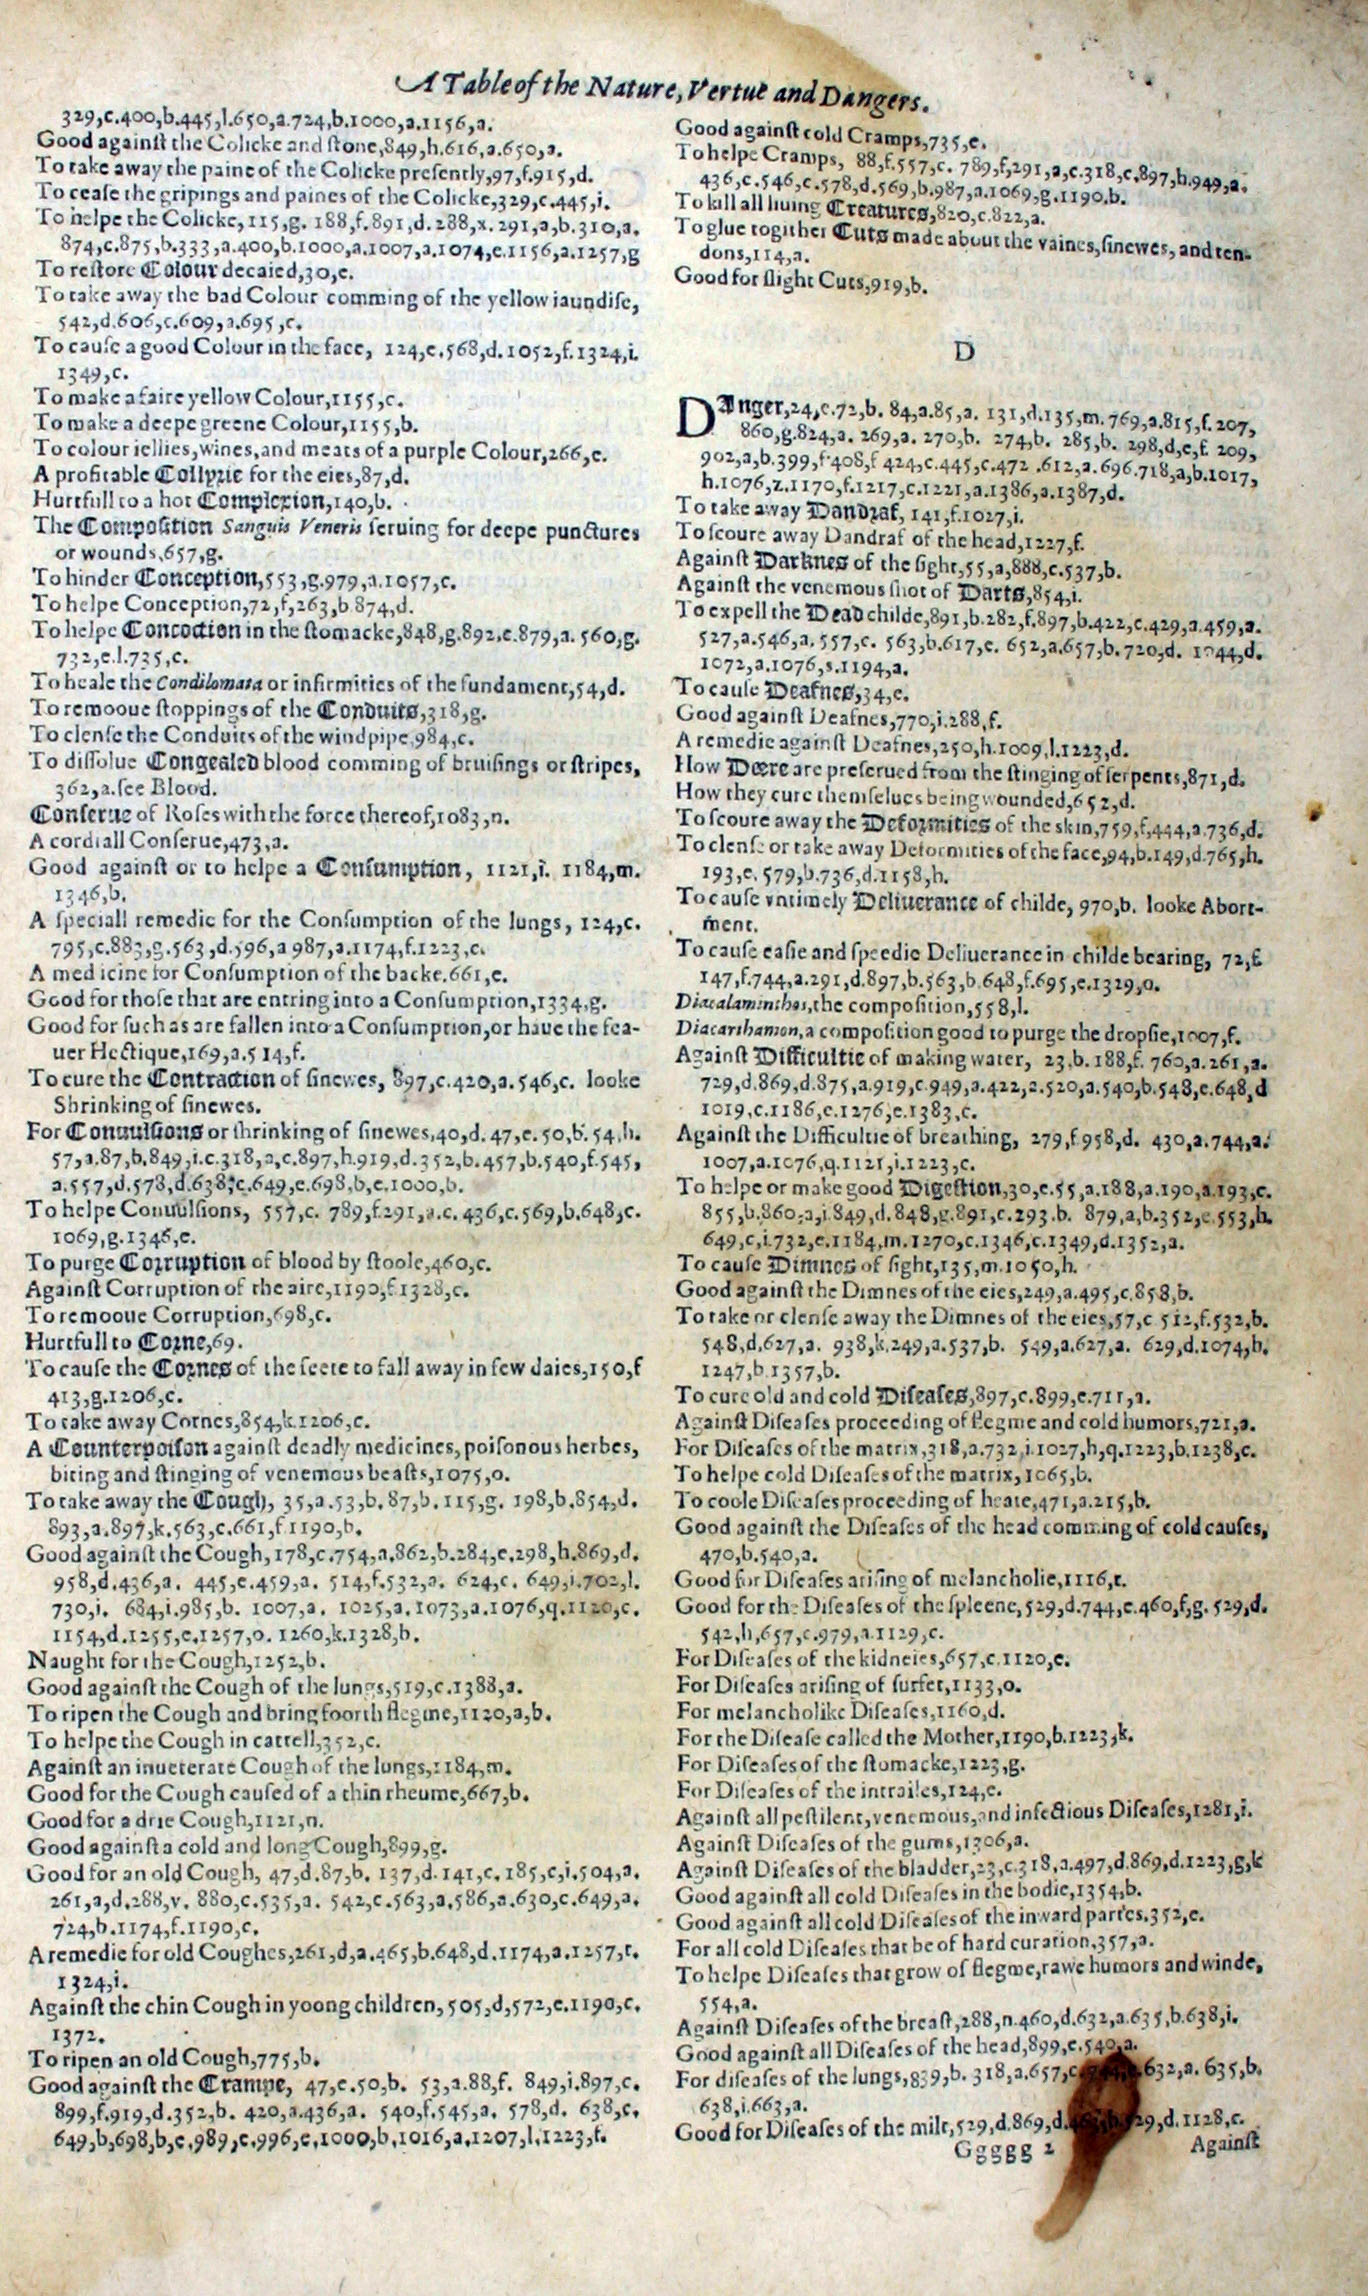 A Table of the Nature, Vertue and Dangers.
329,c.400,b.445,l.650,a.724,b.1000,a.1156,a.
Good againſt the Colicke and ſtone,849,h.616,a.650,a.
To take away the paine of the Colicke preſently,97,f.915,d.
To ceaſe the gripings and paines of the Colicke,329,c.445,i.
To helpe the Colicke,115,g. 188,f.891,d.288,x.291,a,b.310,a.
874,c.875,b.333,a.400,b.1000,a.1007,a.1074,e.1156,a.1257,g
To reſtore Colour decaied,30,e.
To take away the bad Colour comming of the yellow iaundiſe,
542,d.606,c.609,a.695,c.
To cauſe a good Colour in the face, 124,e.568,d.1052,f.1324,i.
1349,c.
To make a faire yellow Colour,1155,c.
To make a deepe greene Colour,1155,b.
To colour iellies,wines,and meats of a purple Colour,266,e.
A profitable Collyrie for the eies,87,d.
Hurtfull to a hot Complexion,140,b.
The Compoſition Sanguis Veneris ſeruing for deepe punctures
or wounds,657,g.
To hinder Conception,553,g.979,a.1057,c.
To helpe Conception,72,f,263,b 874,d.
To helpe Concoction in the ſtomacke,848,g.892,e.879,a. 560,g.
732,e.l.735,c.
To heale the Condilomata or infirmities of the fundament,54,d.
To remooue ſtoppings of the Conduits,318,g.
To clenſe the Conduits of the windpipe,984,c.
To diſſolue Congealed blood comming of bruiſings or ſtripes,
362,a.ſee Blood.
Conſerue of Roſes with the force thereof,1083,n.
A cordiall Conſerue,473,a.
Good againſt or to helpe a Conſumption, 1121,i. 1184,m.
1346,b.
A ſpeciall remedie for the Conſumption of the lungs, 124,c.
795,c.883,g.563,d.596,a 987,a.1174,f.1223,c.
A medicine for Conſumption of the backe.661,e.
Good for thoſe that are entring into a Conſumption,1334,g.
Good for ſuch as are fallen into a Conſumption,or haue the fea-
uer Hectique,169,a.514,f.
To cure the Contraction of ſinewes, 897,c.420,a.546,c. looke
Shrinking of ſinewes.
For Conuulſions or ſhrinking of ſinewes,40,d.47,e.50,b.54,h.
57,a.87,b.849,i.c.318,a,c.897,h.919,d.352,b.457,b.540,f.545,
a.557,d.578,d.638,c.649,e.698,b,e.1000,b.
To helpe Conuulſions, 557,c. 789,f.291,a.c.436,c.569,b.648,c.
1069,g.1346,e.
To purge Corruption of blood by ſtoole,460,c.
Againſt Corruption of the aire,1190,f 1328,c.
To remooue Corruption,698,c.
Hurtfull to Corne,69.
To cauſe the Cornes of the feete to fall away in few daies,150,f
413,g.1206,c.
To take away Cornes,854,k.1206,c.
A Counterpoiſon againſt deadly medicines,poiſonous herbes,
biting and ſtinging of venemous beaſts,1075,o.
To take away the Cough, 35,a.53,b.87,b.115,g. 198,b.854,d.
893,a.897,k.563,c.661,f.1190,b.
Good againſt the Cough,178,c.754,a.862,b.284,e.298,h.869,d.
958,d.436,a. 445,e.459,a. 514,f.532,a. 624,c. 649,i.702,l.
730,i. 684,i.985,b. 1007,a. 1025,a.1073,a.1076,q.1120,c.
1154,d.1255,e.1257,o. 1260,k.1328,b.
Naught for the Cough,1252,b.
Good againſt the Cough of the lungs,519,c.1388,a.
To ripen the Cough and bring foorth flegme,1120,a,b.
To helpe the Cough in cattell,352,c.
Againſt an inueterate Cough of the lungs,1184,m.
Good for the Cough cauſed of a thin rheume,667,b.
Good for a drie Cough,1121,n.
Good againſt a cold and long Cough,899,g.
Good for an old Cough, 47,d.87,b. 137,d.141,c.185,c,i.504,a.
261,a,d.288,v. 880,c.535,a. 542,c.563,a.586,a.630,c.649,a.
724,b.1174,f.1190,c.
A remedie for old Coughes,261,d,a.465,b.648,d.1174,a.1257,t.
1324,i.
Againſt the chin Cough in yoong children,505,d,572,e.1190,c.
1372.
To ripen an old Cough,775,b.
Good againſt the Crampe, 47,e.50,b. 53,a.88,f. 849,i.897,c.
899,f.919,d.352,b. 420,a.436,a. 540,f.545,a. 578,d. 638,c.
649,b,698,b,e.989,c,996,e.1000,b.1016,a.1207,l.1223,f.
Good againſt cold Cramps,735,e.
To helpe Cramps, 88,f.557,c. 789,f,291,a,c.318,c.897,h.949,a.
436,c.546,c.578,d.569,b.987,a.1069,g.1190.b.
To kill all liuing Creatures,820,c.822,a.
To glue togither Cuts made about the vaines,ſinewes,and ten-
dons,114,a.
Good for ſlight Cuts,919,b.
D
DAnger,24,c.72,b. 84,a.85,a. 131,d.135,m.769,a.815,f.207,
860,g.824,a. 269,a. 270,b. 274,b. 285,b. 298,d,e,f. 209,
902,a,b.399,f.408,f 424,c.445,c.472 .612,a.696.718,a,b.1017,
h.1076,z.1170,f.1217,c.1221,a.1386,a.1387,d.
To take away Dandraf, 141,f.1027,i.
To ſcoure away Dandraf of the head,1227,f.
Againſt Darknes of the ſight,55,a,888,c.537,b.
Againſt the venemous ſhot of Darts,854,i.
To expell the Dead childe,891,b.282,f.897,b.422,c.429,a.459,a.
527,a.546,a. 557,c. 563,b.617,e. 652,a.657,b.720,d. 1044,d.
1072,a.1076,s.1194,a.
To cauſe Deafnes,34,e.
Good againſt Deafnes,770,i.288,f.
A remedie againſt Deafnes,250,h.1009,l.1223,d.
How Deere are preſerued from the ſtinging of ſerpents,871,d.
How they cure themſelues being wounded,652,d.
To ſcoure away the Deformities of the skin,759,f,444,a.736,d.
To clenſe or take away Deformities of the face,94,b.149,d.765,h.
193,e.579,b.736,d.1158,h.
To cauſe vntimely Deliuerance of childe, 970,b. looke Abort-
ment.
To cauſe eaſie and ſpeedie Deliuerance in childe bearing, 72,f.
147,f.744,a.291,d.897,b.563,b.648,f.695,e.1329,o.
Diacalaminthos,the compoſition,558,l.
Diacarthamon,a compoſition good to purge the dropſie,1007,f.
Againſt Difficultie of making water, 23.b.188,f. 760,a.261,a.
729,d.869,d.875,a.919,c.949,a.422,a.520,a.540,b.548,e.648,d
1019,c.1186,c.1276,e.1383,c.
Againſt the Difficultie of breathing, 279,f.958,d. 430,a.744,a.
1007,a.1076,q.1121,i.1223,c.
To helpe or make good Digeſtion,30,e.55,a.188,a.190,a.193,c.
855,b.860,a,i.849,d.848,g.891,c.293.b. 879,a,b.352,e.553,h.
649,c,i.732,e.1184,m.1270,c.1346,c.1349,d.1352,a.
To cauſe Dimnes of ſight,135,m.1050,h.
Good againſt the Dimnes of the eies,249,a.495,c.858,b.
To take or clenſe away the Dimnes of the eies,57,c 512,f.532,b.
548,d.627,a. 938,k.249,a.537,b. 549,a.627,a. 629,d.1074,h.
1247,b 1357,b.
To cure old and cold Diſeaſes,897,c.899,e.711,a.
Againſt Diſeaſes proceeding of flegme and cold humors,721,a.
For Diſeaſes of the matrix,318,a.732,i.1027,h,q.1223,b.1238,c.
To helpe cold Diſeaſes of the matrix,1065,b.
To coole Diſeaſes proceeding of heate,471,a.215,b.
Good againſt the Diſeaſes of the head comming of cold cauſes,
470,b.540,a.
Good for Diſeaſes ariſing of melancholie,1116,t.
Good for the Diſeaſes of the ſpleene,529,d.744,e.460,f,g. 529,d.
542,h,657,c.979,a.1129,c.
For Diſeaſes of the kidneies,657,c.1120,e.
For Diſeaſes ariſing of ſurfet,1133,o.
For melancholike Diſeaſes,1160,d.
For the Diſeaſe called the Mother,1190,b.1223,k.
For Diſeaſes of the ſtomacke,1223,g.
For Diſeaſes of the intrailes,124,e.
Againſt all peſtilent,venemous,and infectious Diſeaſes,1281,i.
Againſt Diſeaſes of the gums,1306,a.
Againſt Diſeaſes of the bladder,23,c.318,a.497,d.869,d.1223,g,k
Good againſt all cold Diſeaſes in the bodie,1354,b.
Good againſt all cold Diſeaſes of the inward partes.352,e.
For all cold Diſeaſes that be of hard curation,357,a.
To helpe Diſeaſes that grow of flegme,rawe humors and winde,
554,a.
Againſt Diſeaſes of the breaſt,288,n.460,d.632,a.635,b.638,i.
Good againſt all Diſeaſes of the head,899,e.540,a.
For diſeaſes of the lungs,839,b. 318,a.657,c. 632,a. 635,b.
638,i.663,a.
Good for Diſeaſes of the milt,529,d.869,d. 529,d.1128,c.
Ggggg 2 Againſt